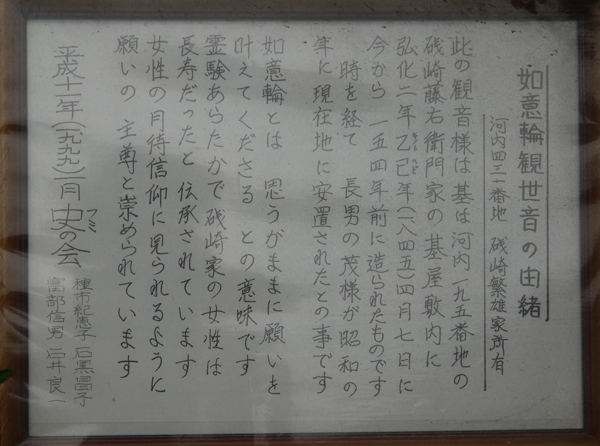 如意輪観世音の由緒
河内四三一番地 磯崎繁雄家所有
此の観音様は基は河内一九五番地の
磯崎藤右衛門家の基屋敷内に
弘化二年乙巳年(一八四五)四月七日に
今から 一五四年前に造られたものです
時を経て 長男の茂様が昭和の
年に現在地に安置されたとの事です
如意輪とは 思うがままに願いを
叶えてくださる との意味です
霊験あらたかで磯崎家の女性は
長寿だったと伝承されています
女性の月待信仰に見られるように
願いの 主尊と崇められています
平成十一年(一九九九)一月 史の会
フミ
種市紀恵子 石黒昌子
宮部信男 石井良一